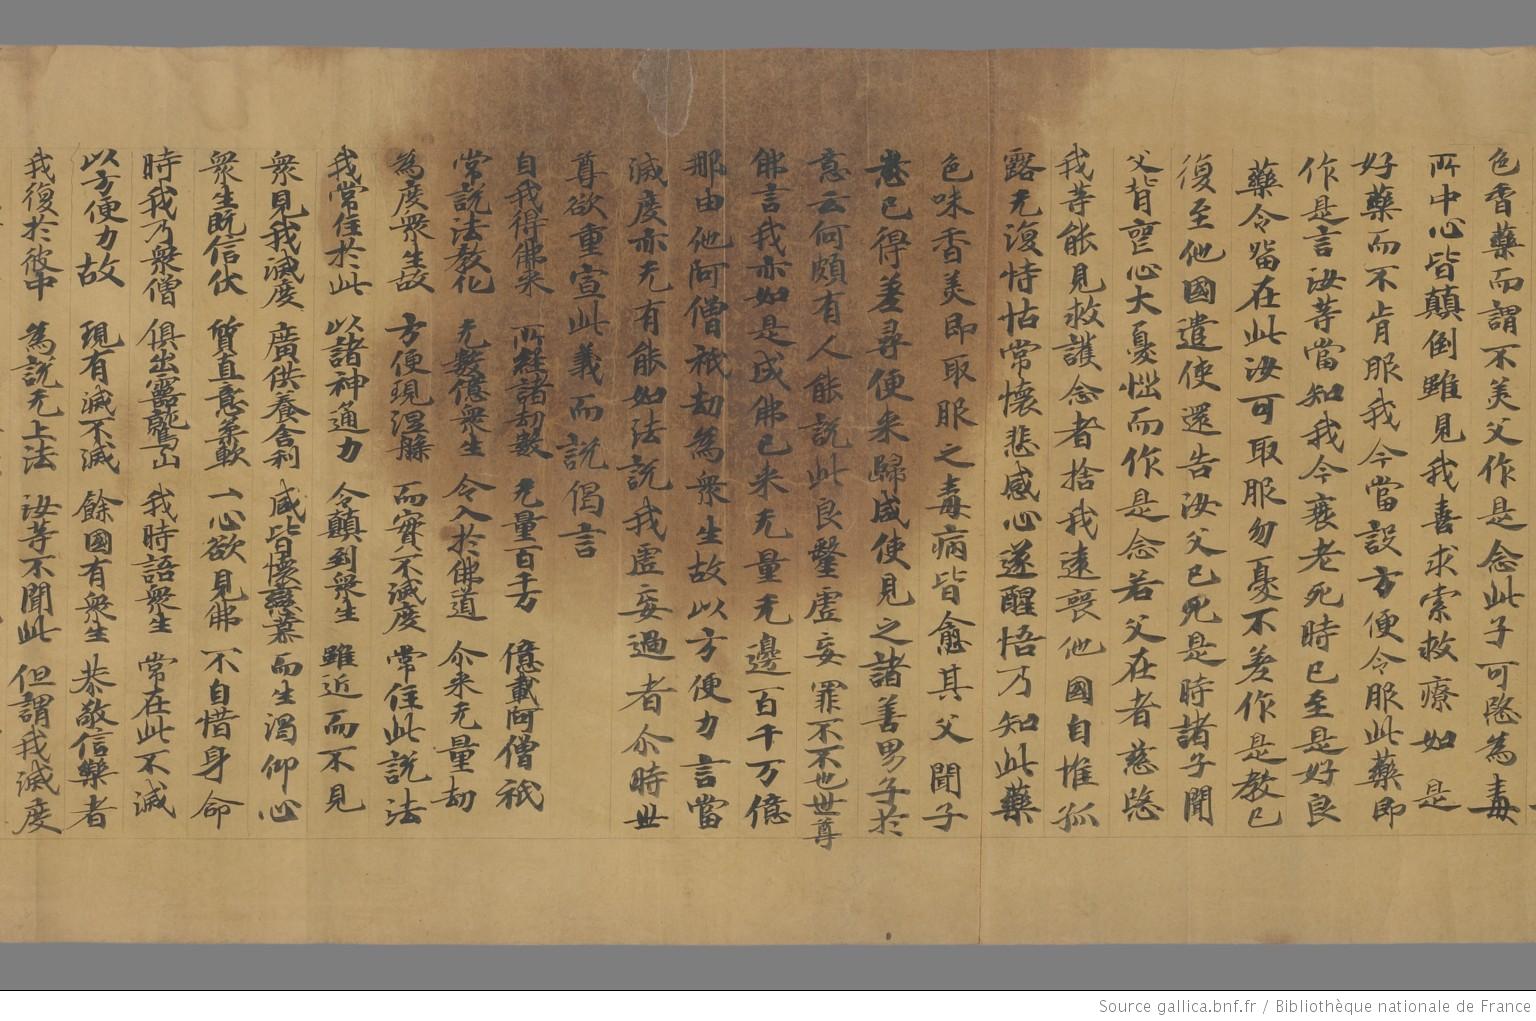 色香藥而謂不美父作是念此子可愍為毒
所中心皆顛倒雖見我喜求索救療如是
好藥而不肯服我今當設方便令服此藥即
作是言汝等當知我今衰老死時已至是好良
藥今留在此汝可取服勿憂不差作是教已
復至他國遣使還告汝父已死是時諸子聞
父背喪心大憂惱而作是念若父在者慈愍
我等能見救護念者捨我遠喪他國自惟孤
露无復恃怙常懷悲感心遂醒悟乃知此藥
色味香美即取服之毒病皆愈其父聞子
悉已得差尋便來歸咸使見之諸善男子於
意云何頗有人能說此良毉虛妄罪不不也世尊
佛言我亦如是成佛已來无量无邊百千万億
那由他阿僧祇劫為衆生故以方便力言當
滅度亦无有能如法說我虛妄過者尒時世
尊欲重宣此義而說偈言
自我得佛來 所經諸劫數 无量百千万 億載阿僧祇
常說法教化 无數億衆生 令入於佛道 尒來无量劫
為度衆生故 方便現涅槃 而實不滅度 常住此說法
我常住於此 以諸神通力 令顛到衆生 雖近而不見
衆見我滅度 廣供養舍利 咸皆懷戀慕 而生渴仰心
衆生既信伏 質直意柔軟 一心欲見佛 不自惜身命
時我乃衆僧 俱出靈鷲山 我時語衆生 常在此不滅
以方便力故 現有滅不滅 餘國有衆生 恭敬信樂者
我復於彼中 為說无上法 汝等不聞此 但謂我滅度
Source gallica.bnf.fr / Bibliothèque nationale de France